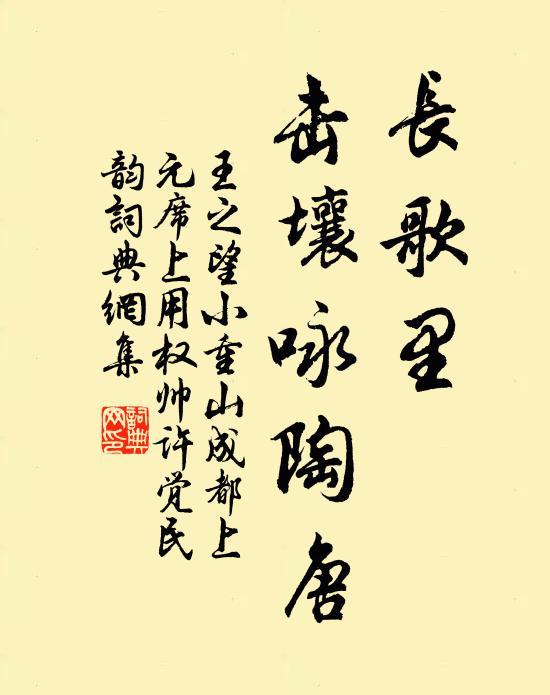 長歌里
击壤咏陶唐
王之望小重山成都上
元席上用权帅许觉民
韵詞典網集
詞典
网印